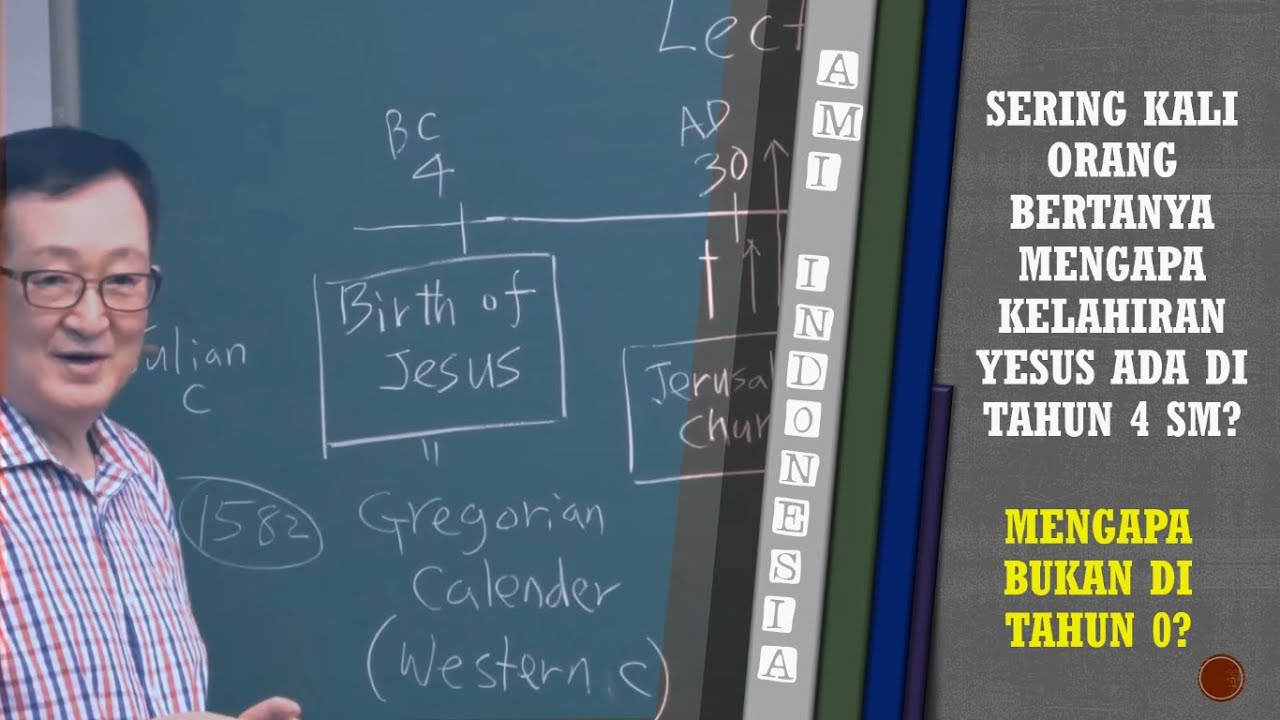 Lect
BC
4
AD
30
Birth of
Jesus
Julian
C
Jerusal
Chur
1582
=
Gregorian
Calender
(Western C)
AMI INDONESIA
SERING KALI
ORANG
BERTANYA
MENGAPA
KELAHIRAN
YESUS ADA DI
TAHUN 4 SM?
MENGAPA
BUKAN DI
TAHUN 0?